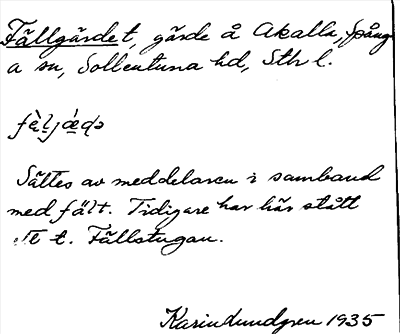 Fällgärdet, gärde å Akalla, Spång
a sn, Sollentuna hd, Sth l.
Sättes av meddelaren i samband
med fält. Tidigare har här stått
t. Fällstugan.
Karin Lundgren 1935